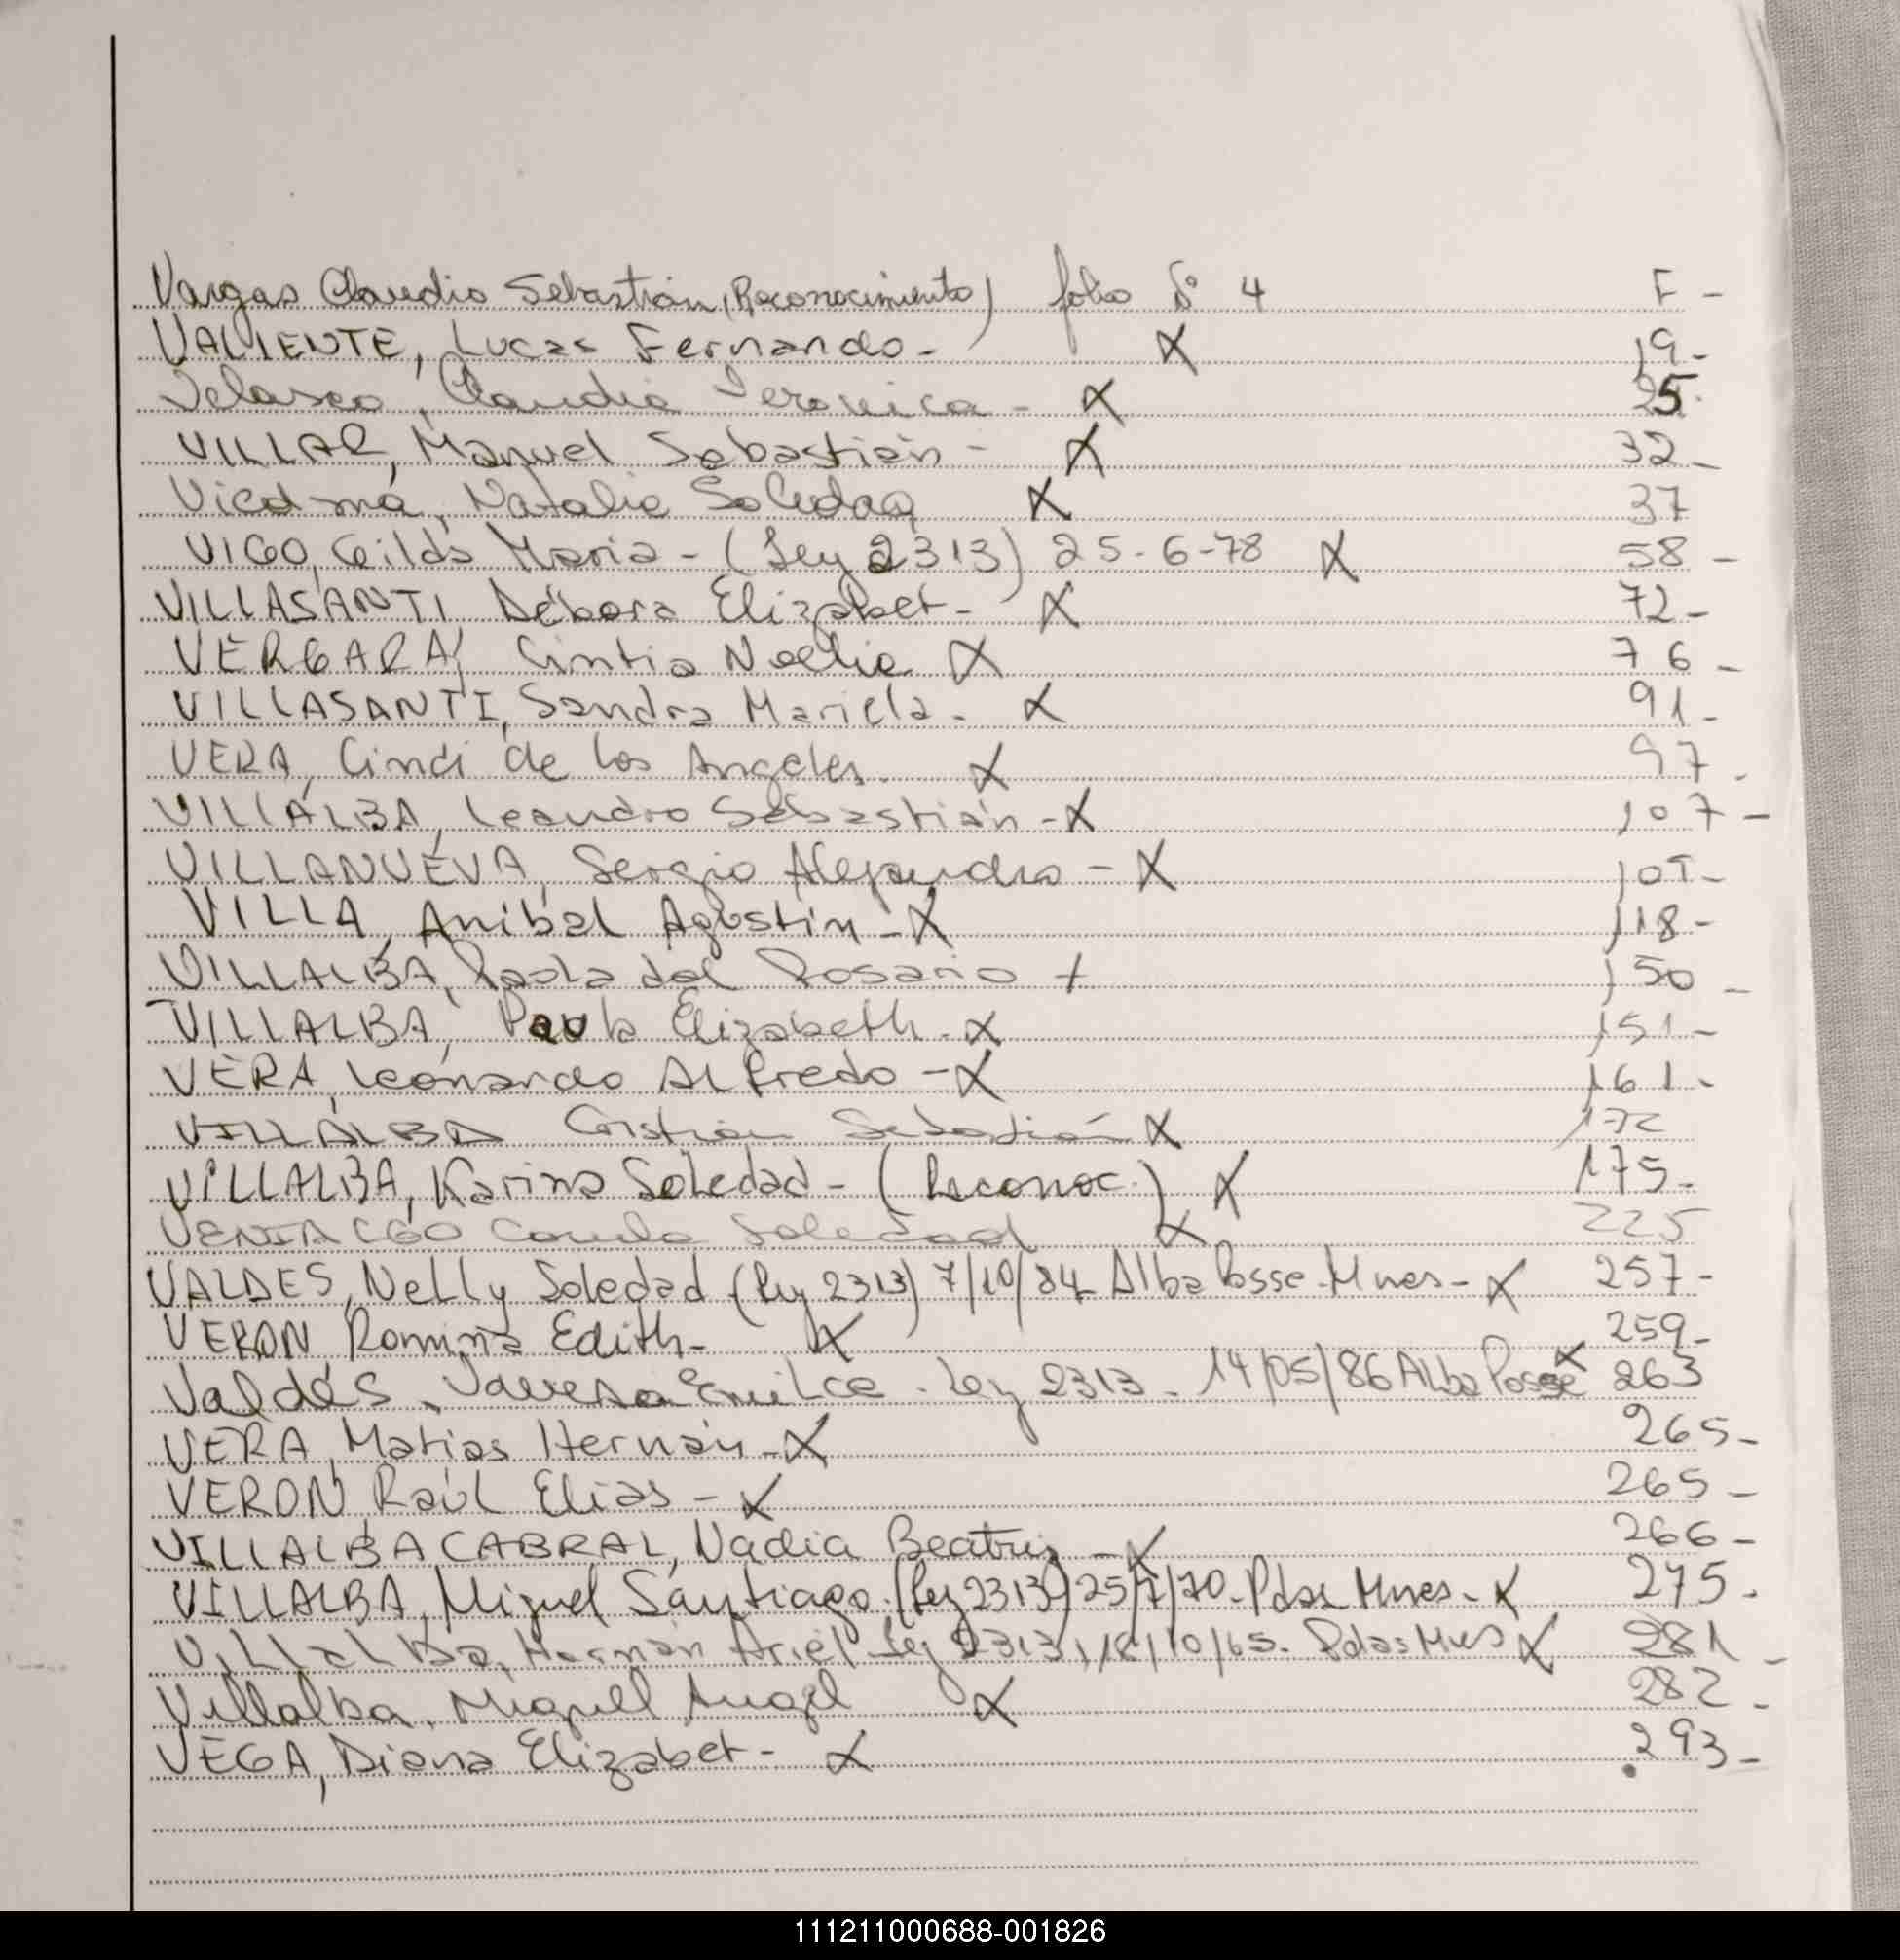 Vargas Claudio Sebastián (Reconocimiento) folio Nº 4 F -
VALIENTE, Lucas Fernando - X 19 -
Velasco, Claudia Veronica - X 25 -
VILLAR, Manuel Sebastián - X 32 -
Viedma, Natalia Soledad X 37
VIGO, Gilda Maria - (Ley 2313) 25-6-78 X 58 -
VILLASANTI, Débora Elizabet - X 72 -
VERGARA, Cintia Noelia X 76 -
VILLASANTI, Sandra Mariela - X 91 -
VERA, Cindi de los Angeles. X 97 -
VILLALBA, Leandro Sebastián - X 107 -
VILLANUEVA, Sergio Alejandro - X
VILLA, Anibal Agustín - X 118 -
VILLALBA, Paola del Rosario + 150 -
VILLALBA, Paula Elizabeth - X 151 -
VERA, Leonardo Alfredo - X 161 -
VILLALBA Cristian Sebastián X 172
VILLALBA, Karina Soledad - (Reconoc.) X 175 -
Soledad X 225
VALDES, Nelly Soledad (Ley 2313) 7/10/84 Alba Posse - Mnes - X 257 -
VERON, Romina Edith - X 259 -
Valdés, Emilce . Ley 2313 - 14/05/86 Alba Posse X 263
VERA, Matias Hernán - X 265 -
VERON, Raúl Elias - X 265 -
VILLALBA CABRAL, Nadia Beatriz - X 266 -
VILLALBA, Miguel Santiago. (Ley 2313) 25/7/70 - Pdas Mnes - X 275 -
Villalba, Hernán Ariel Ley 2313, 18/10/65 - Pdas Mns X 281 -
Villalba, Miguel Angel X 282 -
VEGA, Diana Elizabet - X 293 -
111211000688-001826